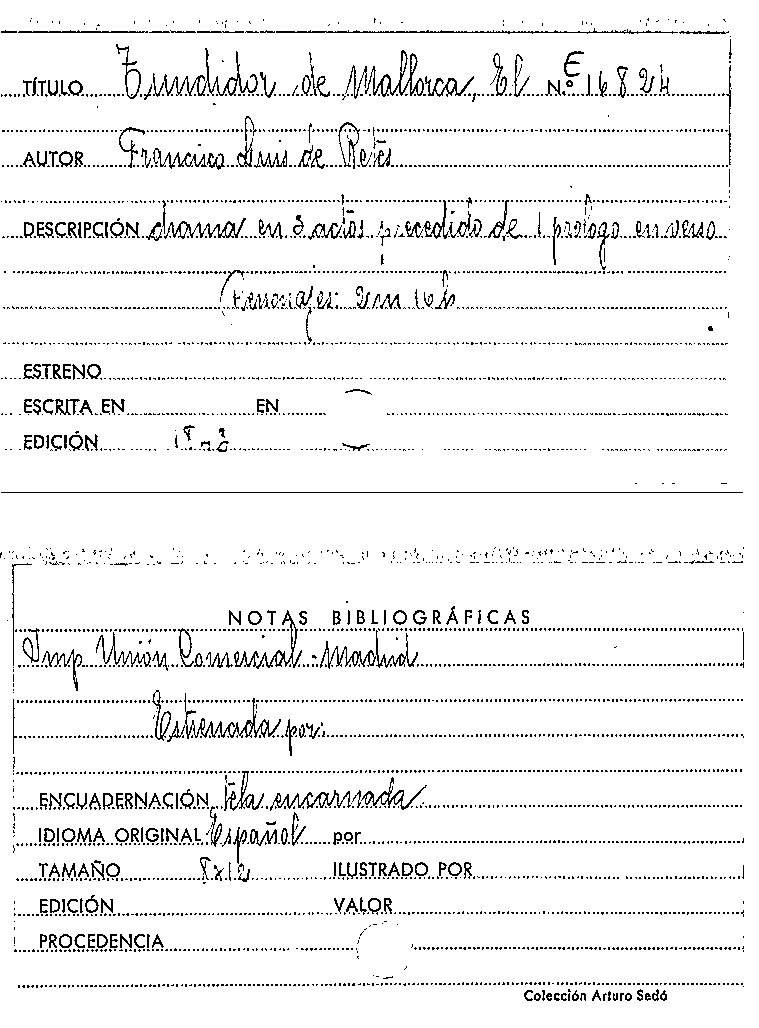 TÍTULO Tundidor de Mallorca, El N.º E 16824
AUTOR Francisco Luis de Retes
DESCRIPCIÓN drama en 3 actos precedido de 1 prologo en verso
Personajes: 2m 16h
ESTRENO
ESCRITA EN EN
EDICIÓN
NOTAS BIBLIOGRÁFICAS
Imp Unión Comercial - Madrid
Estrenada por:
ENCUADERNACIÓN tela encarnada
IDIOMA ORIGINAL Español por
TAMAÑO 8x12 ILUSTRADO POR
EDICIÓN VALOR
PROCEDENCIA
Colección Arturo Sedó